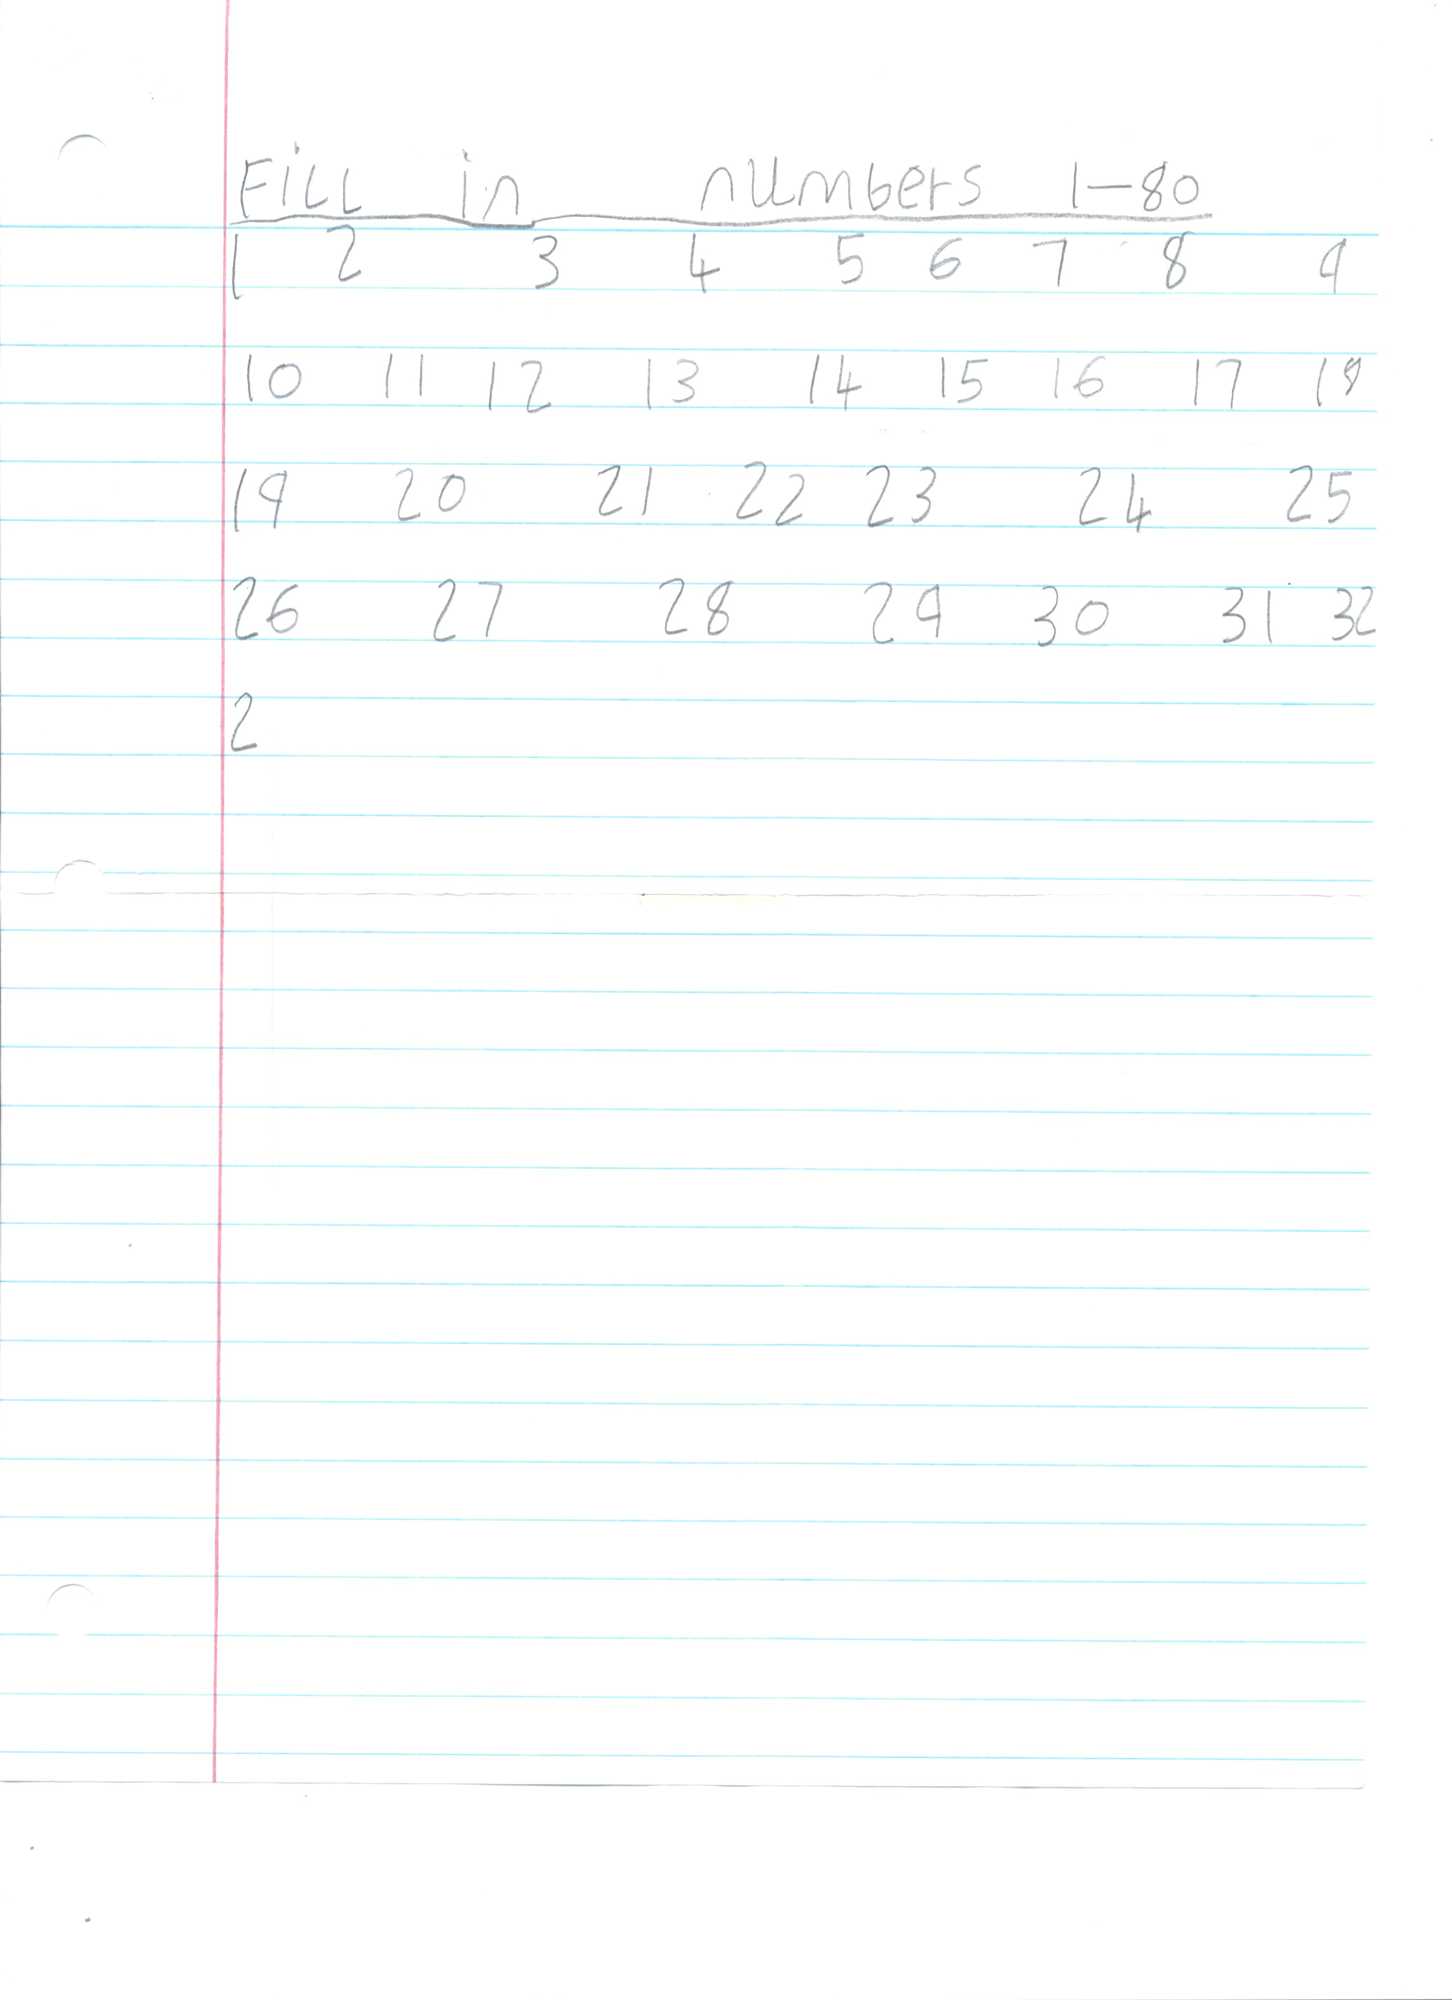 Fill in numbers 1-80
1 2 3 4 5 6 7 8 9
10 11 12 13 14 15 16 17 18
19 20 21 22 23 24 25
26 27 28 29 30 31 32
2